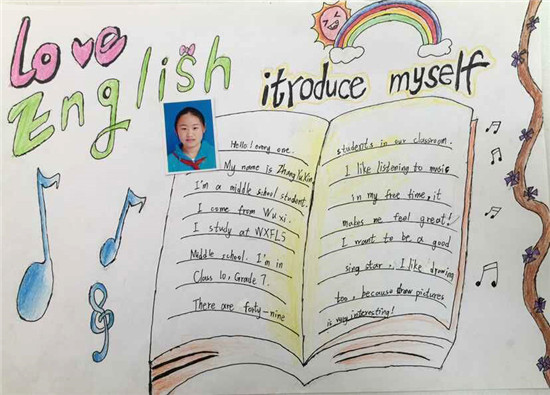 Love
English
itroduce myself
Hello! every one.
My name is Zhang Yuxin
I'm a middle school student.
I come from Wu xi.
I study at WXFLS
Middle school. I'm in
Class 10, Grade 7.
There are forty-nine
students in our classroom.
I like listening to music
in my free time, it
makes me feel great!
I want to be a good
sing star. I like drawing
too, because draw pictures
is very interesting!